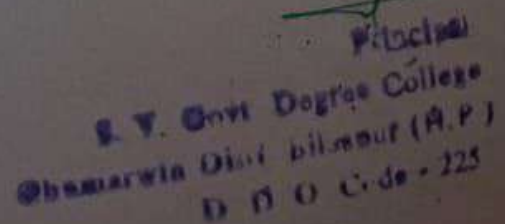 Principal
S. V. Govt Degree College
Ghumarwin Distt bilaspur (H.P)
D D O Code - 225